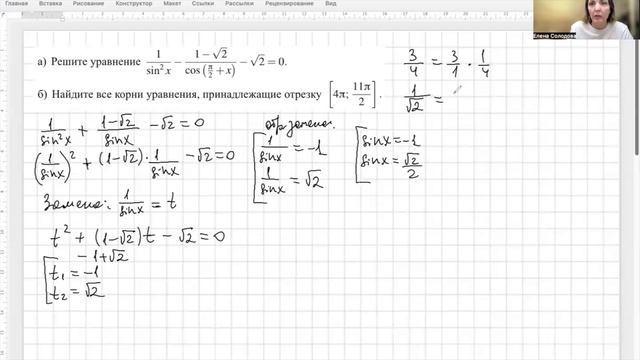 Главная Вставка Рисование Конструктор Макет Ссылки Рассылки Рецензирование Вид
Елена Солодова
а) Решите уравнение 1/sin²x − (1−√2)/cos(π/2 + x) − √2 = 0.
б) Найдите все корни уравнения, принадлежащие отрезку [4π; 11π/2].
3/4 = 3/1 · 1/4
1/√2 =
1/sin²x + (1−√2)/sinx − √2 = 0
(1/sinx)² + (1−√2)·1/sinx − √2 = 0
Замена: 1/sinx = t
t² + (1−√2)t − √2 = 0
−1+√2
t₁ = −1
t₂ = √2
обр замена:
1/sinx = −1
1/sinx = √2
sinx = −1
sinx = √2/2